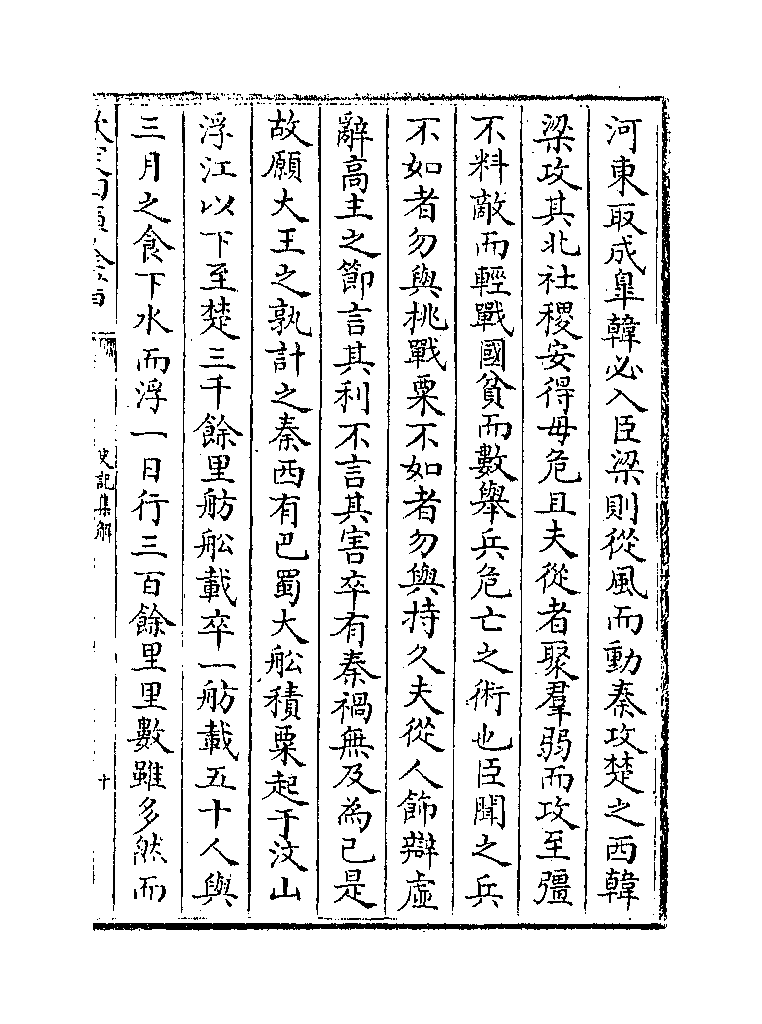 河東取成臯韓必入臣梁則從風而動秦攻楚之西韓
梁攻其北社稷安得毋危且夫從者聚羣弱而攻至彊
不料敵而輕戰國貧而數舉兵危亡之術也臣聞之兵
不如者勿與挑戰粟不如者勿與持久夫從人飾辯虛
辭高主之節言其利不言其害卒有秦禍無及為已是
故願大王之孰計之秦西有巴蜀大舩積粟起于汶山
浮江以下至楚三千餘里舫舩載卒一舫載五十人與
三月之食下水而浮一日行三百餘里里數雖多然而
史記集解
十